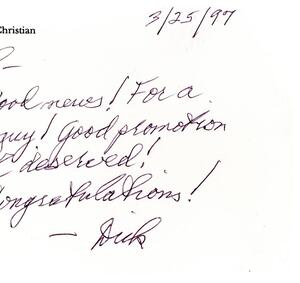 Christian
3/25/97
ood news! For a
guy! Good promotion
deserved!
ongratulations!
— Dick